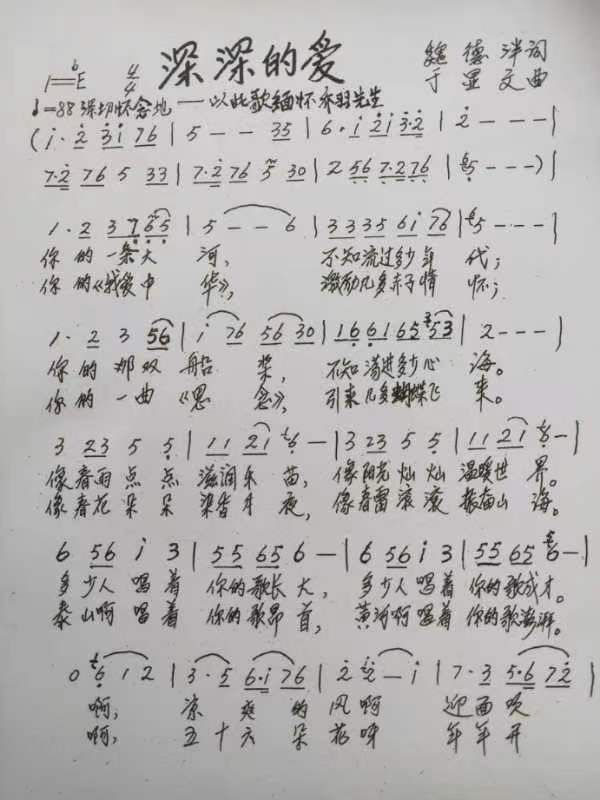 深深的爱
魏德泮词
1=♭E 4/4
于显文曲
♩=88 深切怀念地 ——以此歌缅怀乔羽先生
(i·2 3i 76 | 5 - - 35 | 6·i 2i 3·2 | 2 - - - |
7·2 76 5 33 | 7·2 76 5 30 | 2 56 7·2 76 | 5 - - -)|
1·2 3 765 | 5 - - 6 | 3335 6i 76 | 5 - - - |
你的一条大河，不知流过多少年代；
你的《我爱中华》，激励几多赤子情怀；
1·2 3 56 | i 76 56 30 | 166165 53 | 2 - - - |
你的那双船桨，不知荡进多少心海。
你的一曲《思念》，引来几多蝴蝶飞来。
3 23 5 5 | 11 21 6 - | 3 23 5 5 | 11 21 6 - |
像春雨点点滋润禾苗，像阳光灿灿温暖世界。
像春花朵朵染香月夜，像春雷滚滚振奋山海。
6 56 i 3 | 55 65 6 - | 6 56 i 3 | 55 65 6 - |
多少人唱着你的歌长大，多少人唱着你的歌成才。
泰山啊唱着你的歌昂首，黄河啊唱着你的歌澎湃。
0 6 1 2 | 3·5 6·i 76 | 2 2 - i | 7·3 5·6 72 |
啊，凉爽的风啊迎面吹
啊，五十六朵花呀年年开